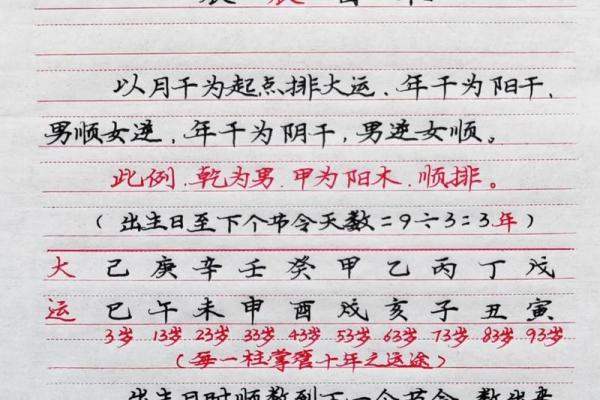 以月干为起点排大运，年干为阳干，
男顺女逆，年干为阴干，男逆女顺。
此例.乾为男.甲为阳木.顺排。
（出生日至下个节令天数=9÷3=3年）
大 己 庚 辛 壬 癸 甲 乙 丙 丁 戊
运 巳 午 未 申 酉 戌 亥 子 丑 寅
3岁 13岁 23岁 33岁 43岁 53岁 63岁 73岁 83岁 93岁
（每一柱掌管十年之运途）
出生日时顺数到下一个节令